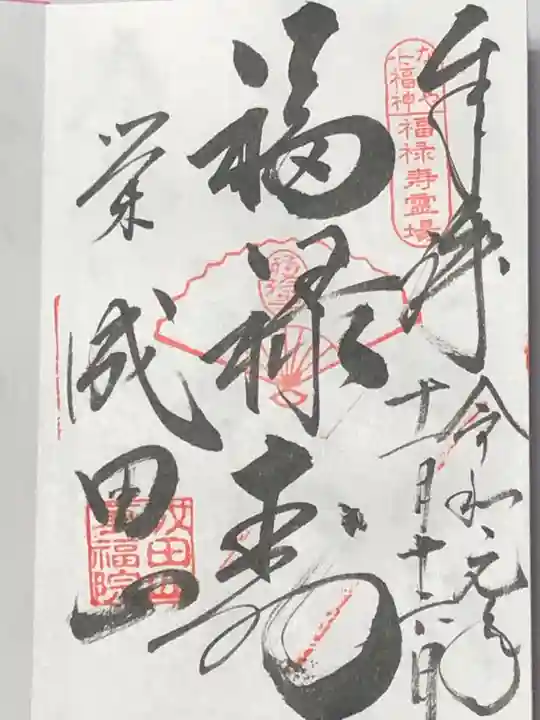 奉拝
令和元年
十一月十六日
なごや
七福神
福禄寿霊場
福禄寿
栄
成田山
成田山
萬福院